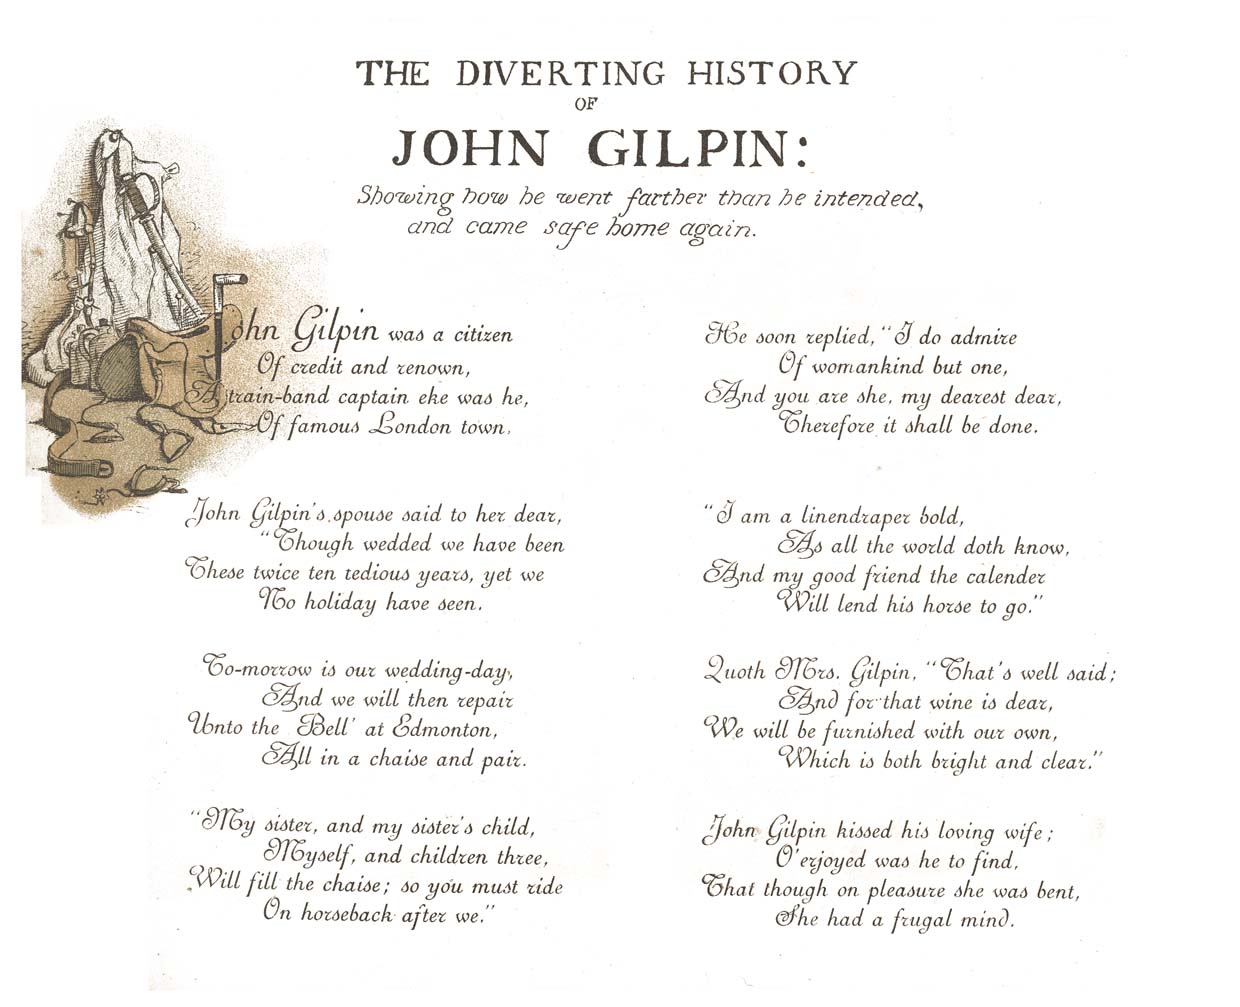 THE DIVERTING HISTORY
OF
JOHN GILPIN:
Showing how he went farther than he intended,
and came safe home again.
John Gilpin was a citizen
Of credit and renown,
A train-band captain eke was he,
Of famous London town.
John Gilpin's spouse said to her dear,
"Though wedded we have been
These twice ten tedious years, yet we
No holiday have seen.
To-morrow is our wedding-day,
And we will then repair
Unto the Bell' at Edmonton,
All in a chaise and pair.
"My sister, and my sister's child,
Myself, and children three,
Will fill the chaise; so you must ride
On horseback after we."
He soon replied, "I do admire
Of womankind but one,
And you are she, my dearest dear,
Therefore it shall be done.
"I am a linendraper bold,
As all the world doth know,
And my good friend the calender
Will lend his horse to go."
Quoth Mrs. Gilpin, "That's well said;
And for that wine is dear,
We will be furnished with our own,
Which is both bright and clear."
John Gilpin kissed his loving wife;
O'erjoyed was he to find,
That though on pleasure she was bent,
She had a frugal mind.